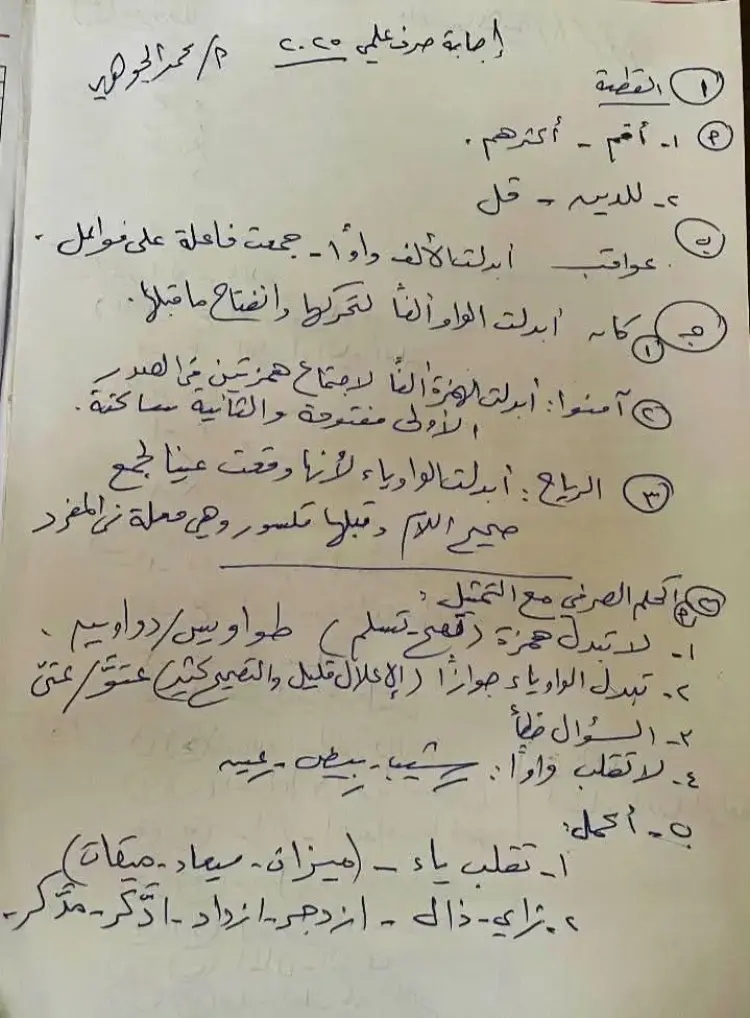 إجابة صرف علمي ٢٠٢٥ م/ محمد الجوهري
١ القطعة
٢ ١- أقم - أكثرهم .
٢- للدين - قل
ب عواقب أبدلت الألف واوًا - جمعت فاعلة على فواعل .
جـ ١ كان أبدلت الواو ألفًا لتحركها وانفتاح ما قبلها .
٢ آمنوا : أبدلت الهمزة ألفًا لاجتماع همزتين في الصدر
الأولى مفتوحة والثانية ساكنة .
٣ الرياح : أبدلت الواو ياء لأنها وقعت عينا لجمع
صحيح اللام وقبلها مكسور وهي معلة في المفرد
الحكم الصرفي مع التمثيل :
١- لا تبدل همزة (تصح - تسلم) طواويس / دواوين .
٢- تبدل الواو ياء جوازًا (الإعلال قليل والتصحيح كثير) عتوّ / عتيّ
٣- السؤال خطأ
٤- لا تقلب واوًا : شيب - بيض - عين
ب - أكمل :
١- تقلب ياء - (ميزان - ميعاد - ميقات)
٢. زاي - ذال - ازدجر - ازداد - ادَّكر - مدَّكر -